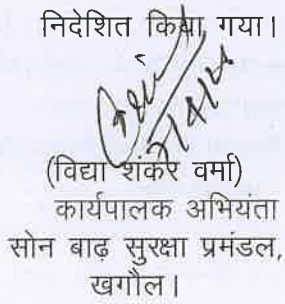 निदेशित किया गया।
(विद्या शंकर वर्मा)
कार्यपालक अभियंता
सोन बाढ़ सुरक्षा प्रमंडल,
खगौल।